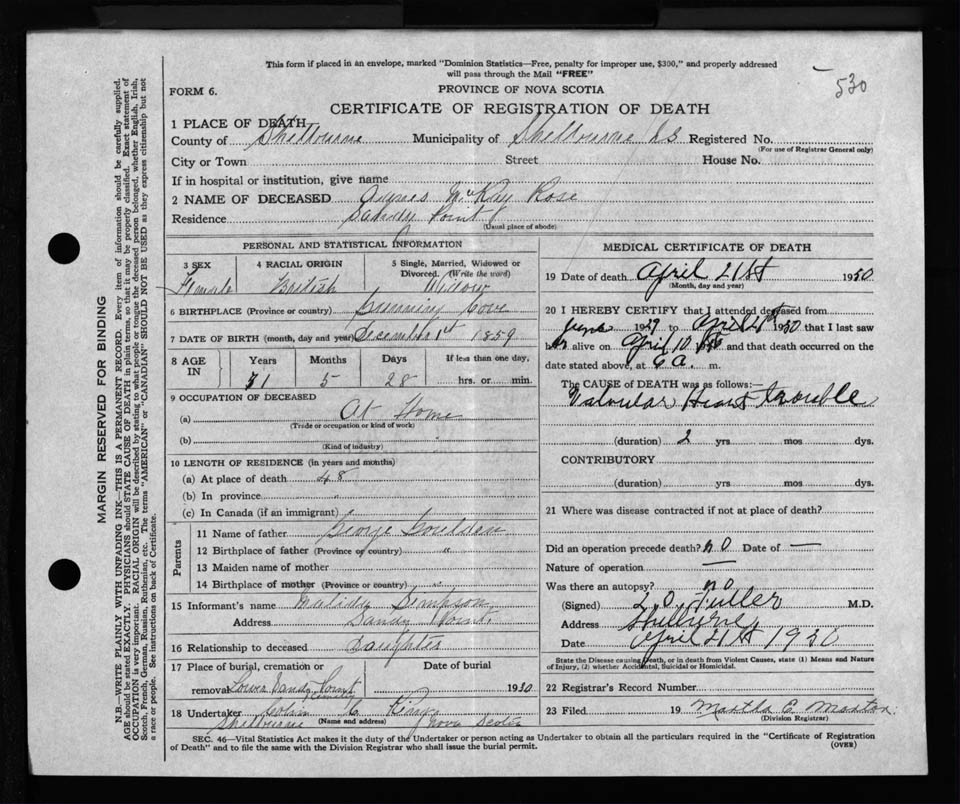 This form if placed in an envelope, marked "Dominion Statistics—Free, penalty for improper use, $300," and properly addressed
will pass through the Mail "FREE"
530
FORM 6.
PROVINCE OF NOVA SCOTIA
CERTIFICATE OF REGISTRATION OF DEATH
1 PLACE OF DEATH
County of Shelburne Municipality of Shelburne N.S Registered No.
(For use of Registrar General only)
City or Town Street House No.
If in hospital or institution, give name
2 NAME OF DECEASED Agnes McKay Rose
Residence Sandy Point
(Usual place of abode)
PERSONAL AND STATISTICAL INFORMATION
3 SEX 4 RACIAL ORIGIN 5 Single, Married, Widowed or Divorced. (Write the word)
Female British Widow
6 BIRTHPLACE (Province or country) Gunning Cove
7 DATE OF BIRTH (month, day and year) December 1st 1859
8 AGE IN Years Months Days If less than one day,
5 28 hrs. or min.
9 OCCUPATION OF DECEASED
(a) At Home
(Trade or occupation or kind of work)
(b)
(Kind of industry)
10 LENGTH OF RESIDENCE (in years and months)
(a) At place of death 48
(b) In province "
(c) In Canada (if an immigrant)
Parents
11 Name of father George Goulden
12 Birthplace of father (Province or country) "
13 Maiden name of mother
14 Birthplace of mother (Province or country) "
15 Informant's name Simpson
Address Sandy Point
16 Relationship to deceased Daughter
17 Place of burial, cremation or Date of burial
removal Lower Sandy Point 1930
18 Undertaker C
(Name and address)
Shelburne Nova Scotia
MEDICAL CERTIFICATE OF DEATH
19 Date of death April 21st 1930
(Month, day and year)
20 I HEREBY CERTIFY that I attended deceased from
June 1929 to April 21st 1930 that I last saw
her alive on April 10 and that death occurred on the
date stated above, at 6 a. m.
The CAUSE OF DEATH was as follows:—
Valvular Heart trouble
(duration) 2 yrs mos dys.
CONTRIBUTORY
(duration) yrs. mos. dys.
21 Where was disease contracted if not at place of death?
Did an operation precede death? no Date of —
Nature of operation —
Was there an autopsy? no
(Signed) L. O. Fuller M.D.
Address Shelburne
Date April 21st 1930
State the Disease causing Death, or in death from Violent Causes, state (1) Means and Nature
of Injury, (2) whether Accidental, Suicidal or Homicidal.
22 Registrar's Record Number
23 Filed 19 Martha E.
(Division Registrar)
SEC. 46—Vital Statistics Act makes it the duty of the Undertaker or person acting as Undertaker to obtain all the particulars required in the "Certificate of Registration
of Death" and to file the same with the Division Registrar who shall issue the burial permit.
(OVER)
MARGIN RESERVED FOR BINDING
N.B.—WRITE PLAINLY WITH UNFADING INK—THIS IS A PERMANENT RECORD. Every item of information should be carefully supplied.
AGE should be stated EXACTLY. PHYSICIANS should STATE CAUSE OF DEATH in plain terms, so that it may be properly classified. Exact statement of
OCCUPATION is very important. RACIAL ORIGIN will be described by stating to what people or tongue the deceased person belonged, whether English, Irish,
Scotch, French, German, Russian, Ruthenian, etc. The terms "AMERICAN" or "CANADIAN" SHOULD NOT BE USED as they express citizenship but not
a race or people. See instructions on back of Certificate.